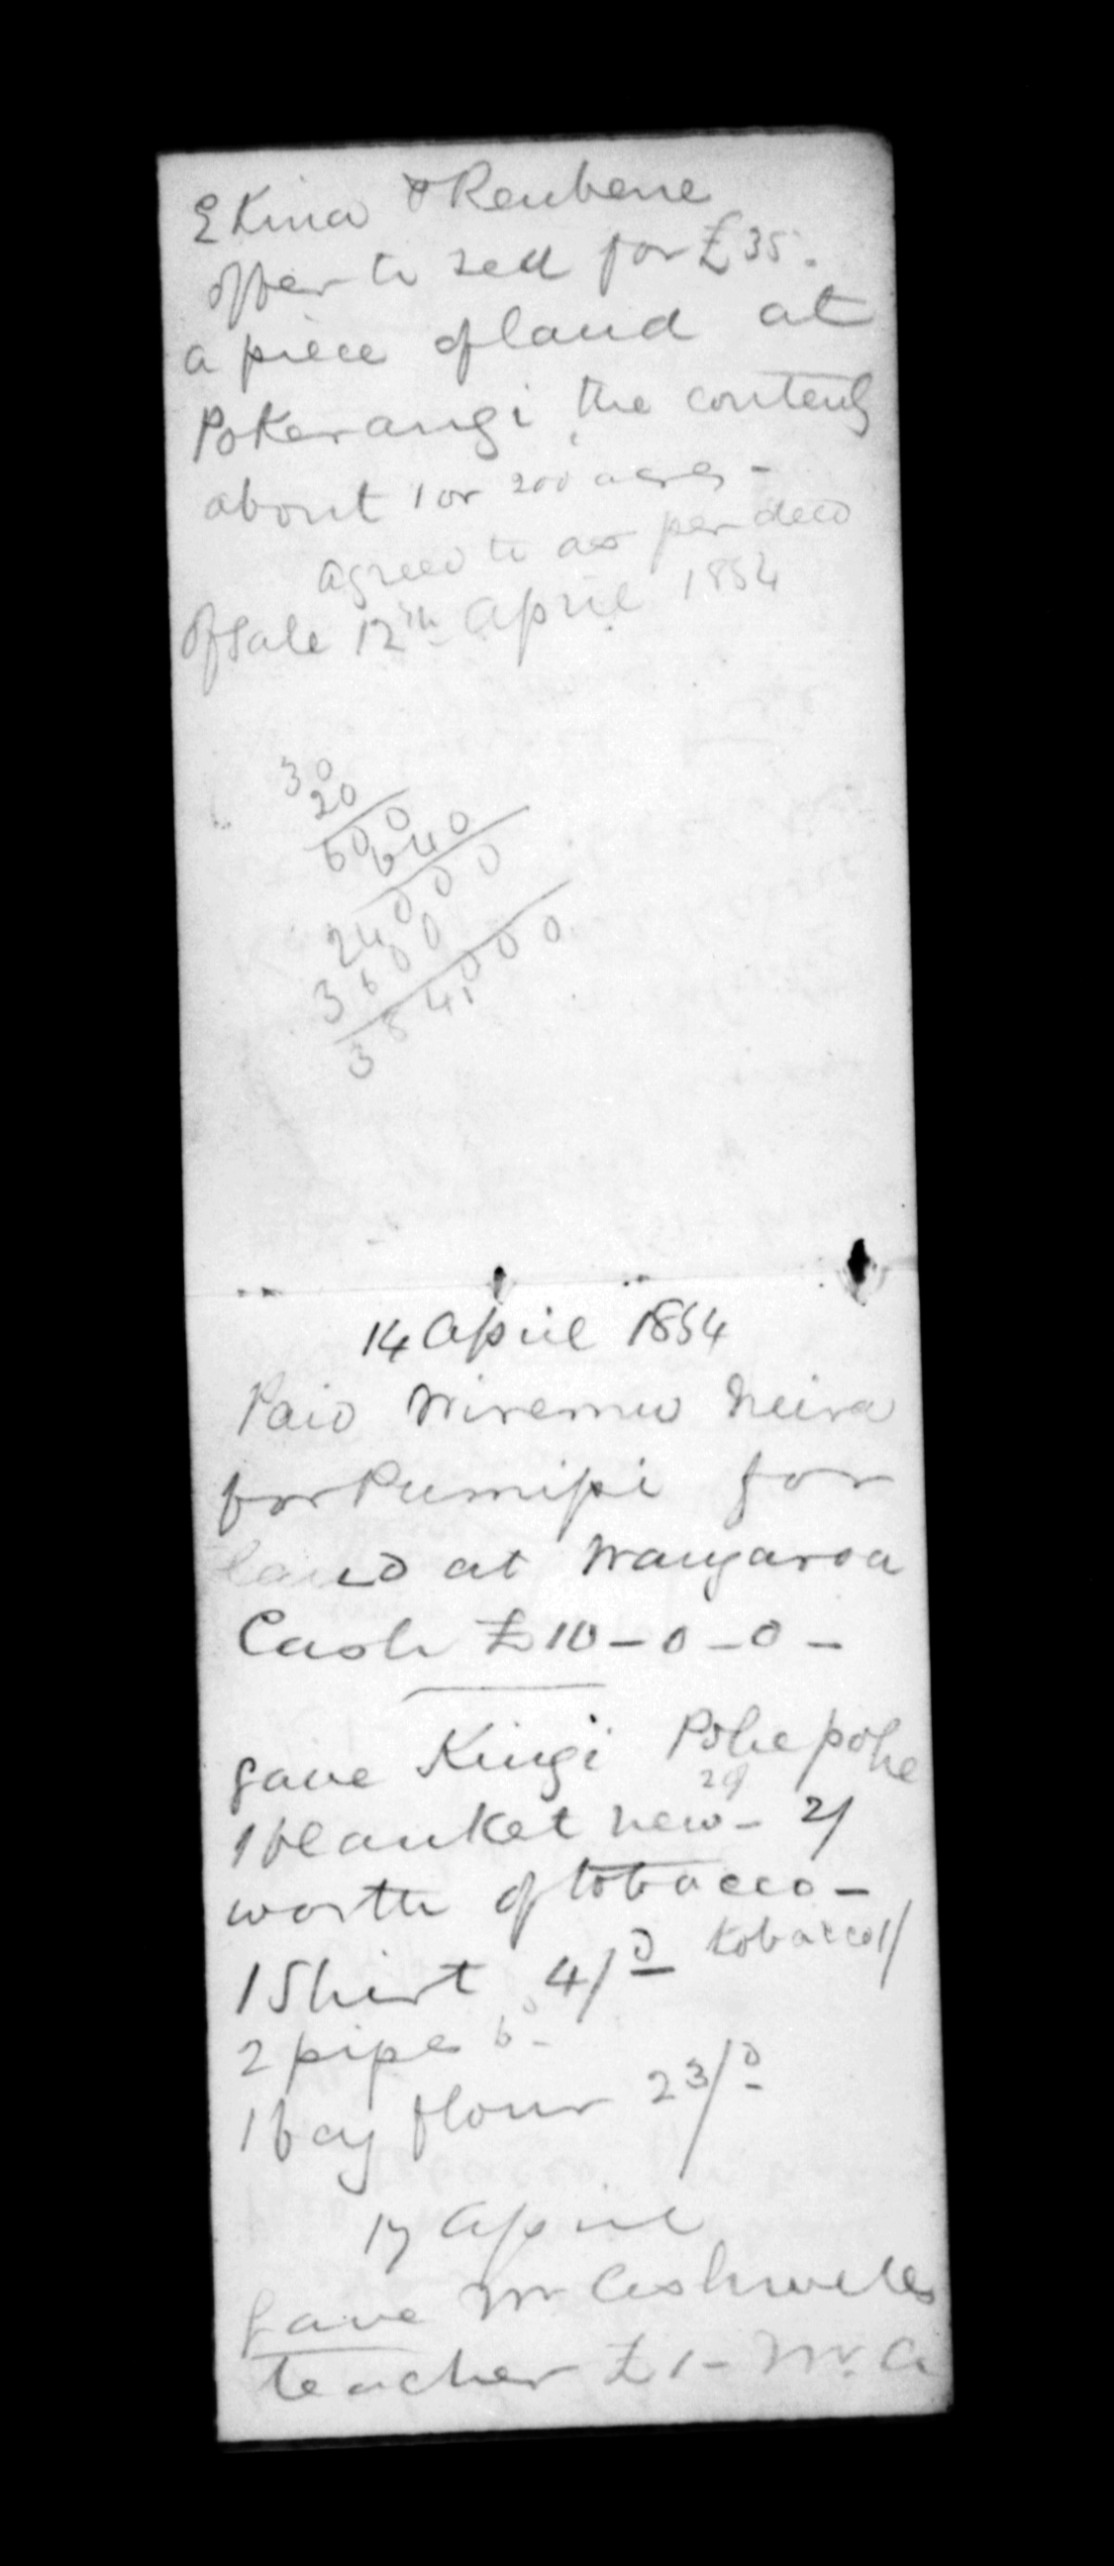 E Kina & Reubene
offer to sell for £35.
a piece of land at
Pokerangi, the contents
about 1 or 200 acres -
agreed to as per deed
of sale 12th April 1854
30
20
600
640
24000
3600
384000
14 April 1854
Paid Wiremu Neira
for Pumipi for
land at Wangaroa
Cash £10-0-0-
gave Kingi Pohepohe
1 blanket new - 2/
worth of tobacco -
1 Shirt 4/0 tobacco 1/
2 pipes 6d -
1 bag flour 23/0
17 April
gave Mr Ashwells
teacher £1 - Mr. A